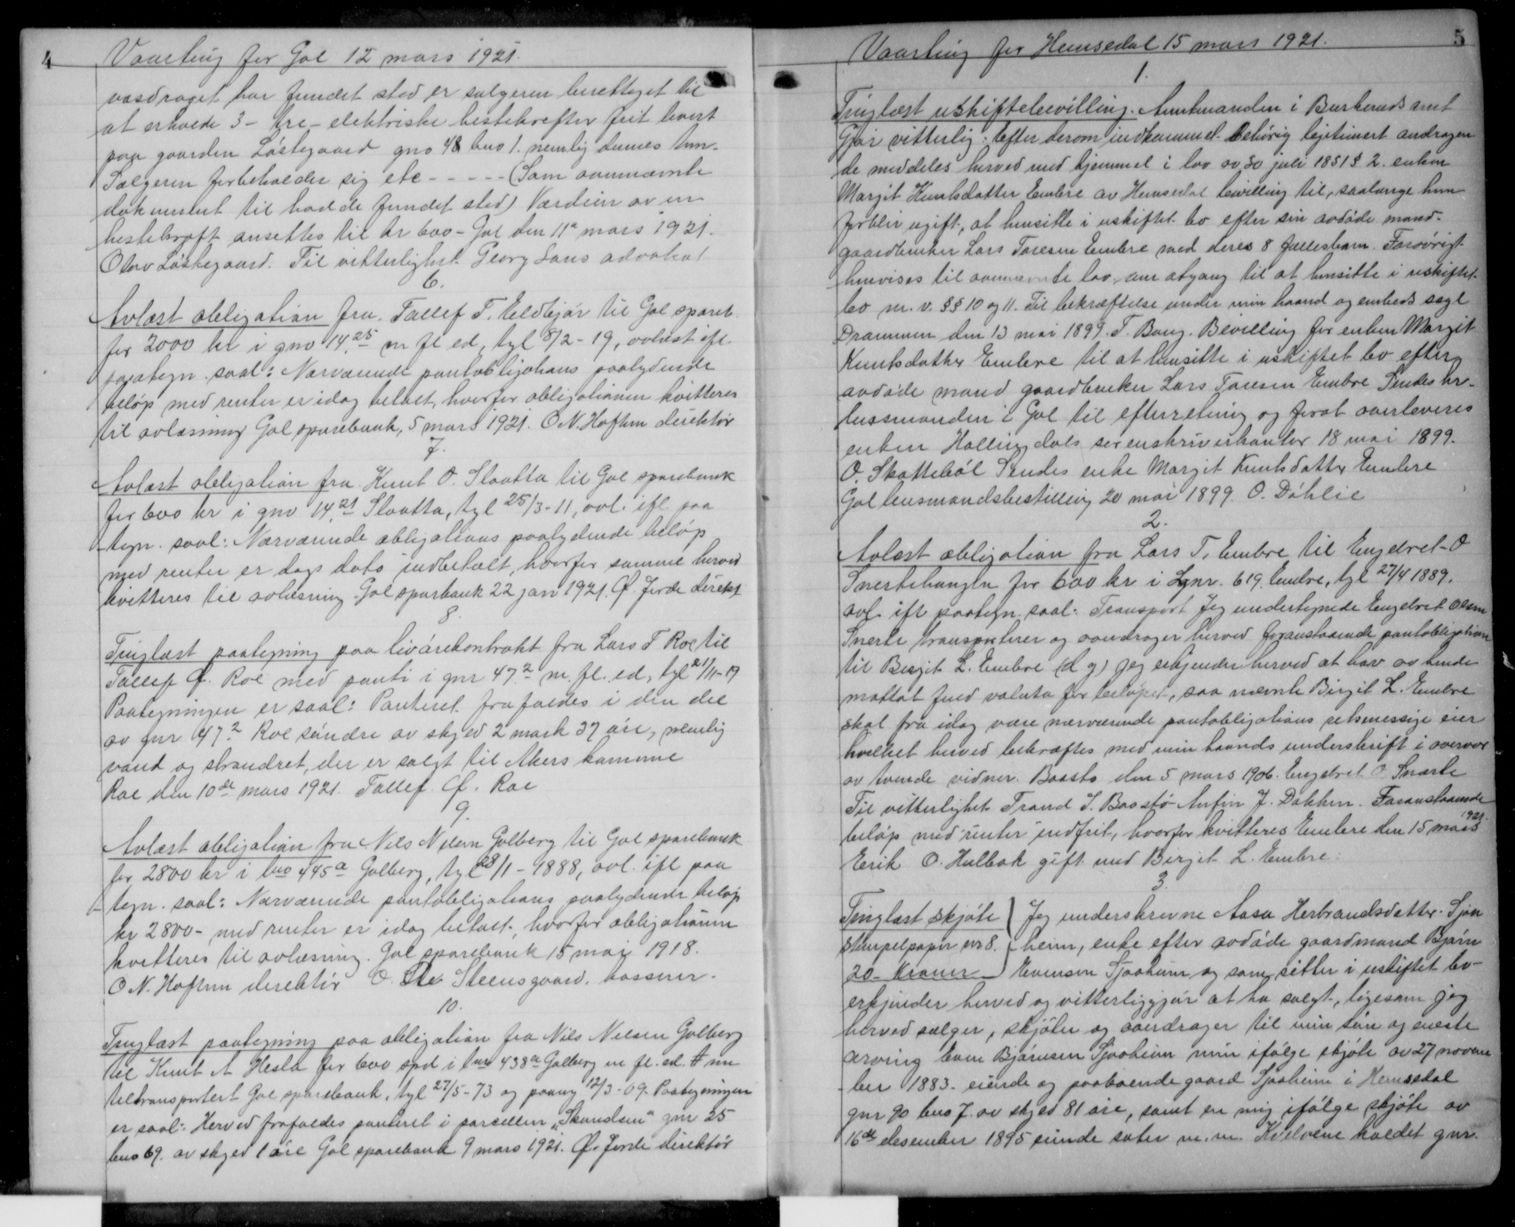 4
Vaarting for Gol 12 mars 1921.
vasdraget har fundet sted er sælgeren berettiget til
at erholde 3 - tre - elektriske hestekræfter frit levert
paa gaarden Löstegaard gno 48 bno 1. nemlig dennes
Sælgeren forbeholder sig etc - - - - - (Som ovennævnte
dokument til hadde fundet sted) Værdien av en
hestekraft ansettes til kr 600 - Gol den 11te mars 1921.
Olav Löstegaard. Til vitterlighet Georg Lous advokat
6.
Avlæst obligation fra Tollef T. Eldbjör til Gol spareb.
for 2000 kr i gno 14,25 m fl ed, tgl 8/2 - 19, avlæst ifl.
paategn. saal: Nærværende pantobligations paalydende
beløp med renter er idag betalt, hvorfor obligationen kvitteres
til avlæsning Gol sparebank, 5 mars 1921. O.N. Hoftun direktör
7.
Avlæst obligation fra Knut O. Slaatta til Gol sparebank
for 600 kr i gno 14,21 Slaatta, tgl 25/3 - 11, avl. ifl paa
tegn. saal: Nærværende obligations paalydende beløp
med renter er dags dato indbetalt, hvorfor samme herved
kvitteres til avlæsning. Gol sparbank 22 jan 1921. Ø. Jorde direktör
8.
Tinglæst paategning paa livörekontrakt fra Lars T Roe til
Tollef Ø. Roe med pant i gnr 47,2 m. fl. ed, tgl 21/11 - 19
Paategningen er saal: Panteret frafaldes i den del
av gnr 47,2 Roe söndre av skyld 2 mark 37 öre, nemlig
vand og strandret, der er solgt til Akers komune
Roe den 10de mars 1921. Tollef Ø. Roe
9.
Avlæst obligation fra Nils Nilsen Golberg til Gol sparebank
for 2800 kr i lno 445a Golberg, tgl 28/11 - 1888, avl. ifl paa
tegn. saal: Nærværende pantobligations paalydende beløp
kr 2800 - med renter er idag betalt, hvorfor obligationen
kvitteres til avlæsning. Gol sparebank 15 mai 1918.
O N. Hoftun direktör O. Steensgaard. kasserer.
10.
Tinglæst paategning paa obligation fra Nils Nilsen Golberg
til Knut A Hesla for 600 spd i lno 438a Golberg m fl. ed # nu
tiltransportert Gol sparebank, tgl 27/5 - 73 og paany 12/3 - 09. Paategningen
er saal: Herved frafaldes panteret i parcellen "Skandsen" gnr 25
bno 69. av skyld 1 öre Gol sparebank 9 mars 1921. Ø. Jorde direktör
5
Vaarting for Hemsedal 15 mars 1921.
1.
Tinglæst uskiftebevilling. Amtmanden i Buskeruds amt
Gjör vitterlig: Efter derom indkommet behörig legitimert andragen
de meddeles herved med hjemmel i lov av 30 juli 1851 § 2. enken
Margit Knutsdatter Embre av Hemsedal bevilling til, saalænge hun
forblir ugift, at hensitte i uskiftet bo efter sin avdöde mand.
gaardbruker Lars Toresen Embre med deres 8 fællesbarn. Forövrigt
henvises til ovennævnte lov, om adgang til at hensitte i uskiftet
bo m. v. §§ 10 og 11. Til bekræftelse under min haand og embeds segl
Drammen den 13 mai 1899. T. Bang. Bevilling for enken Margit
Knutsdatter Embre til at hensitte i uskiftet bo efter
avdöde mand gaardbruker Lars Toresen Embre Sendes hr.
lensmanden i Gol til efterretning og forat overleveres
enken Hallingdals sorenskriverkontor 18 mai 1899.
O. Skatteböl Sendes enke Margit Knutsdatter Embre
Gol lensmandsbestilling 20 mai 1899. O. Döhlie
2.
Avlæst obligation fra Lars T. Embre til Engebret O
for 600 kr i Lgnr. 619. Embre, tgl 27/4 1889.
avl. ifl paategn. saal: Transport Jeg undertegnede Engebret Olsen
Snerte transporterer og overdrager herved foranstaaende pantobligation
til Birgit L. Embre (d y) Jeg erkjender herved at hav av hende
mottat fuld valuta for beløpet, saa nævnte Birgit L. Embre
skal fra idag være nærværende pantobligations retsmessige eier
hvilket herved bekræftes med min haands underskrift i overvær
av tvende vidner. Baasto den 5 mars 1906. Engebret O. Snerte
Til vitterlighet Trond S. Baastö Arfin J. Dokken. Foranstaaende
beløp med renter indfrit, hvorfor kvitteres Embre den 15 mars 1921.
Erik O. Halbak gift med Birgit L. Embre.
3
Tinglæst skjöte } Jeg underskrevne Aasa Herbrandsdatter Sjoa
stempelpapir no 8. } heim, enke efter avdöde gaardmand Björn
20 - Kroner } Hermsen Sjoaheim og som sitter i uskiftet bo -
erkjender herved og vitterliggjör at ha solgt, ligesom jeg
herved sælger, skjöter og overdrager til min sön og eneste
arving Bjørnsen Sjoaheim min ifölge skjöte av 27 novem
ber 1883 - eiende og paaboende gaard Sjoaheim i Hemsedal
gnr 90 bno 7. av skyld 81 öre, samt en mig ifölge skjöte av
16de desember 1895 eiende sæter m. m. Kvelvene kaldet gnr.